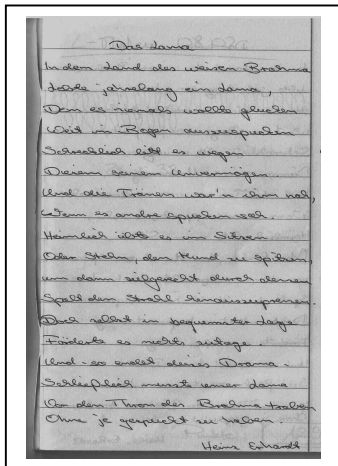 Das Lama
In dem Land des weisen Brahma
Lebte jahrelang ein Lama,
Dem es niemals wollte glücken
Weit im Bogen auszuspucken
Schrecklich litt es wegen
Diesem seinen Unvermögen
Und die Tränen war'n ihm nah,
Wenn es andre spucken sah.
Heimlich übte es im Sitzen
Oder Stehn, den Mund zu spitzen,
um dann zielgerecht durch dessen
Spalt den Strahl hinauszupressen.
Doch selbst in bequemster Lage
Förderte es nichts zutage.
Und so endet dieses Drama -
Schließlich musste unser Lama
Vor den Thron des Brahma traben
Ohne je gespuckt zu haben.
Heinz Erhardt